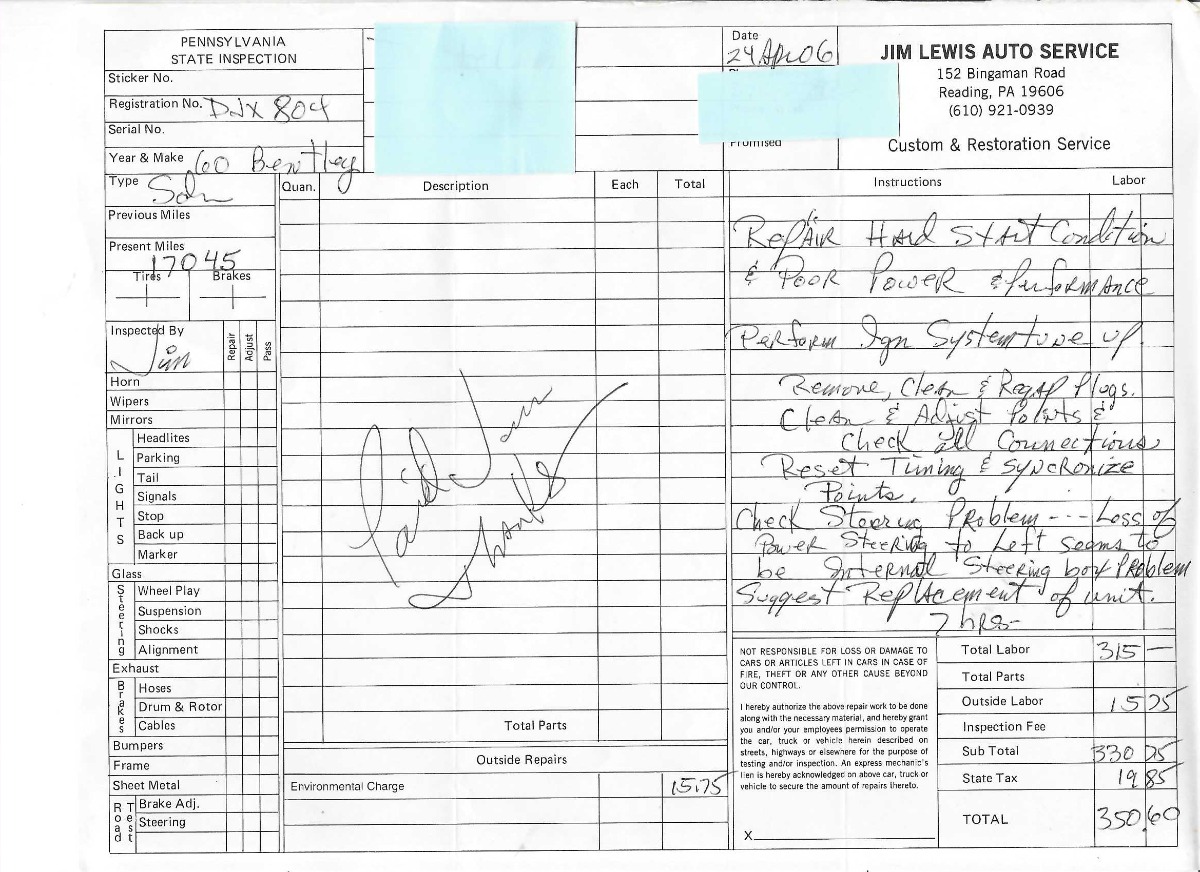 PENNSYLVANIA
STATE INSPECTION
Sticker No.
Registration No. DJX 804
Serial No.
Year & Make 60 Bentley
Type Sdn
Previous Miles
Present Miles
17045
Tires Brakes
Inspected By
Jim
Repair Adjust Pass
Horn
Wipers
Mirrors
LIGHTS
Headlites
Parking
Tail
Signals
Stop
Back up
Marker
Glass
Steering
Wheel Play
Suspension
Shocks
Alignment
Exhaust
Brakes
Hoses
Drum & Rotor
Cables
Bumpers
Frame
Sheet Metal
Road Test
Brake Adj.
Steering
Quan. Description Each Total
Paid
Thanks
Total Parts
Outside Repairs
Environmental Charge 15.75
Date
24 Apr 06
Promised
JIM LEWIS AUTO SERVICE
152 Bingaman Road
Reading, PA 19606
(610) 921-0939
Custom & Restoration Service
Instructions Labor
Repair Hard Start Condition
& Poor Power & Performance
Perform Ign System tune up
Remove, Clean & Regap Plugs.
Clean & Adjust Points &
Check all Connections
Reset Timing & Syncronize
Points.
Check Steering Problem --- Loss of
Power Steering to Left seems to
be Internal Steering box Problem
Suggest Replacement of unit.
7 hrs-
NOT RESPONSIBLE FOR LOSS OR DAMAGE TO
CARS OR ARTICLES LEFT IN CARS IN CASE OF
FIRE, THEFT OR ANY OTHER CAUSE BEYOND
OUR CONTROL.
I hereby authorize the above repair work to be done
along with the necessary material, and hereby grant
you and/or your employees permission to operate
the car, truck or vehicle herein described on
streets, highways or elsewhere for the purpose of
testing and/or inspection. An express mechanic's
lien is hereby acknowledged on above car, truck or
vehicle to secure the amount of repairs thereto.
X
Total Labor 315 —
Total Parts
Outside Labor 15 75
Inspection Fee
Sub Total 330 75
State Tax 19 85
TOTAL 350.60